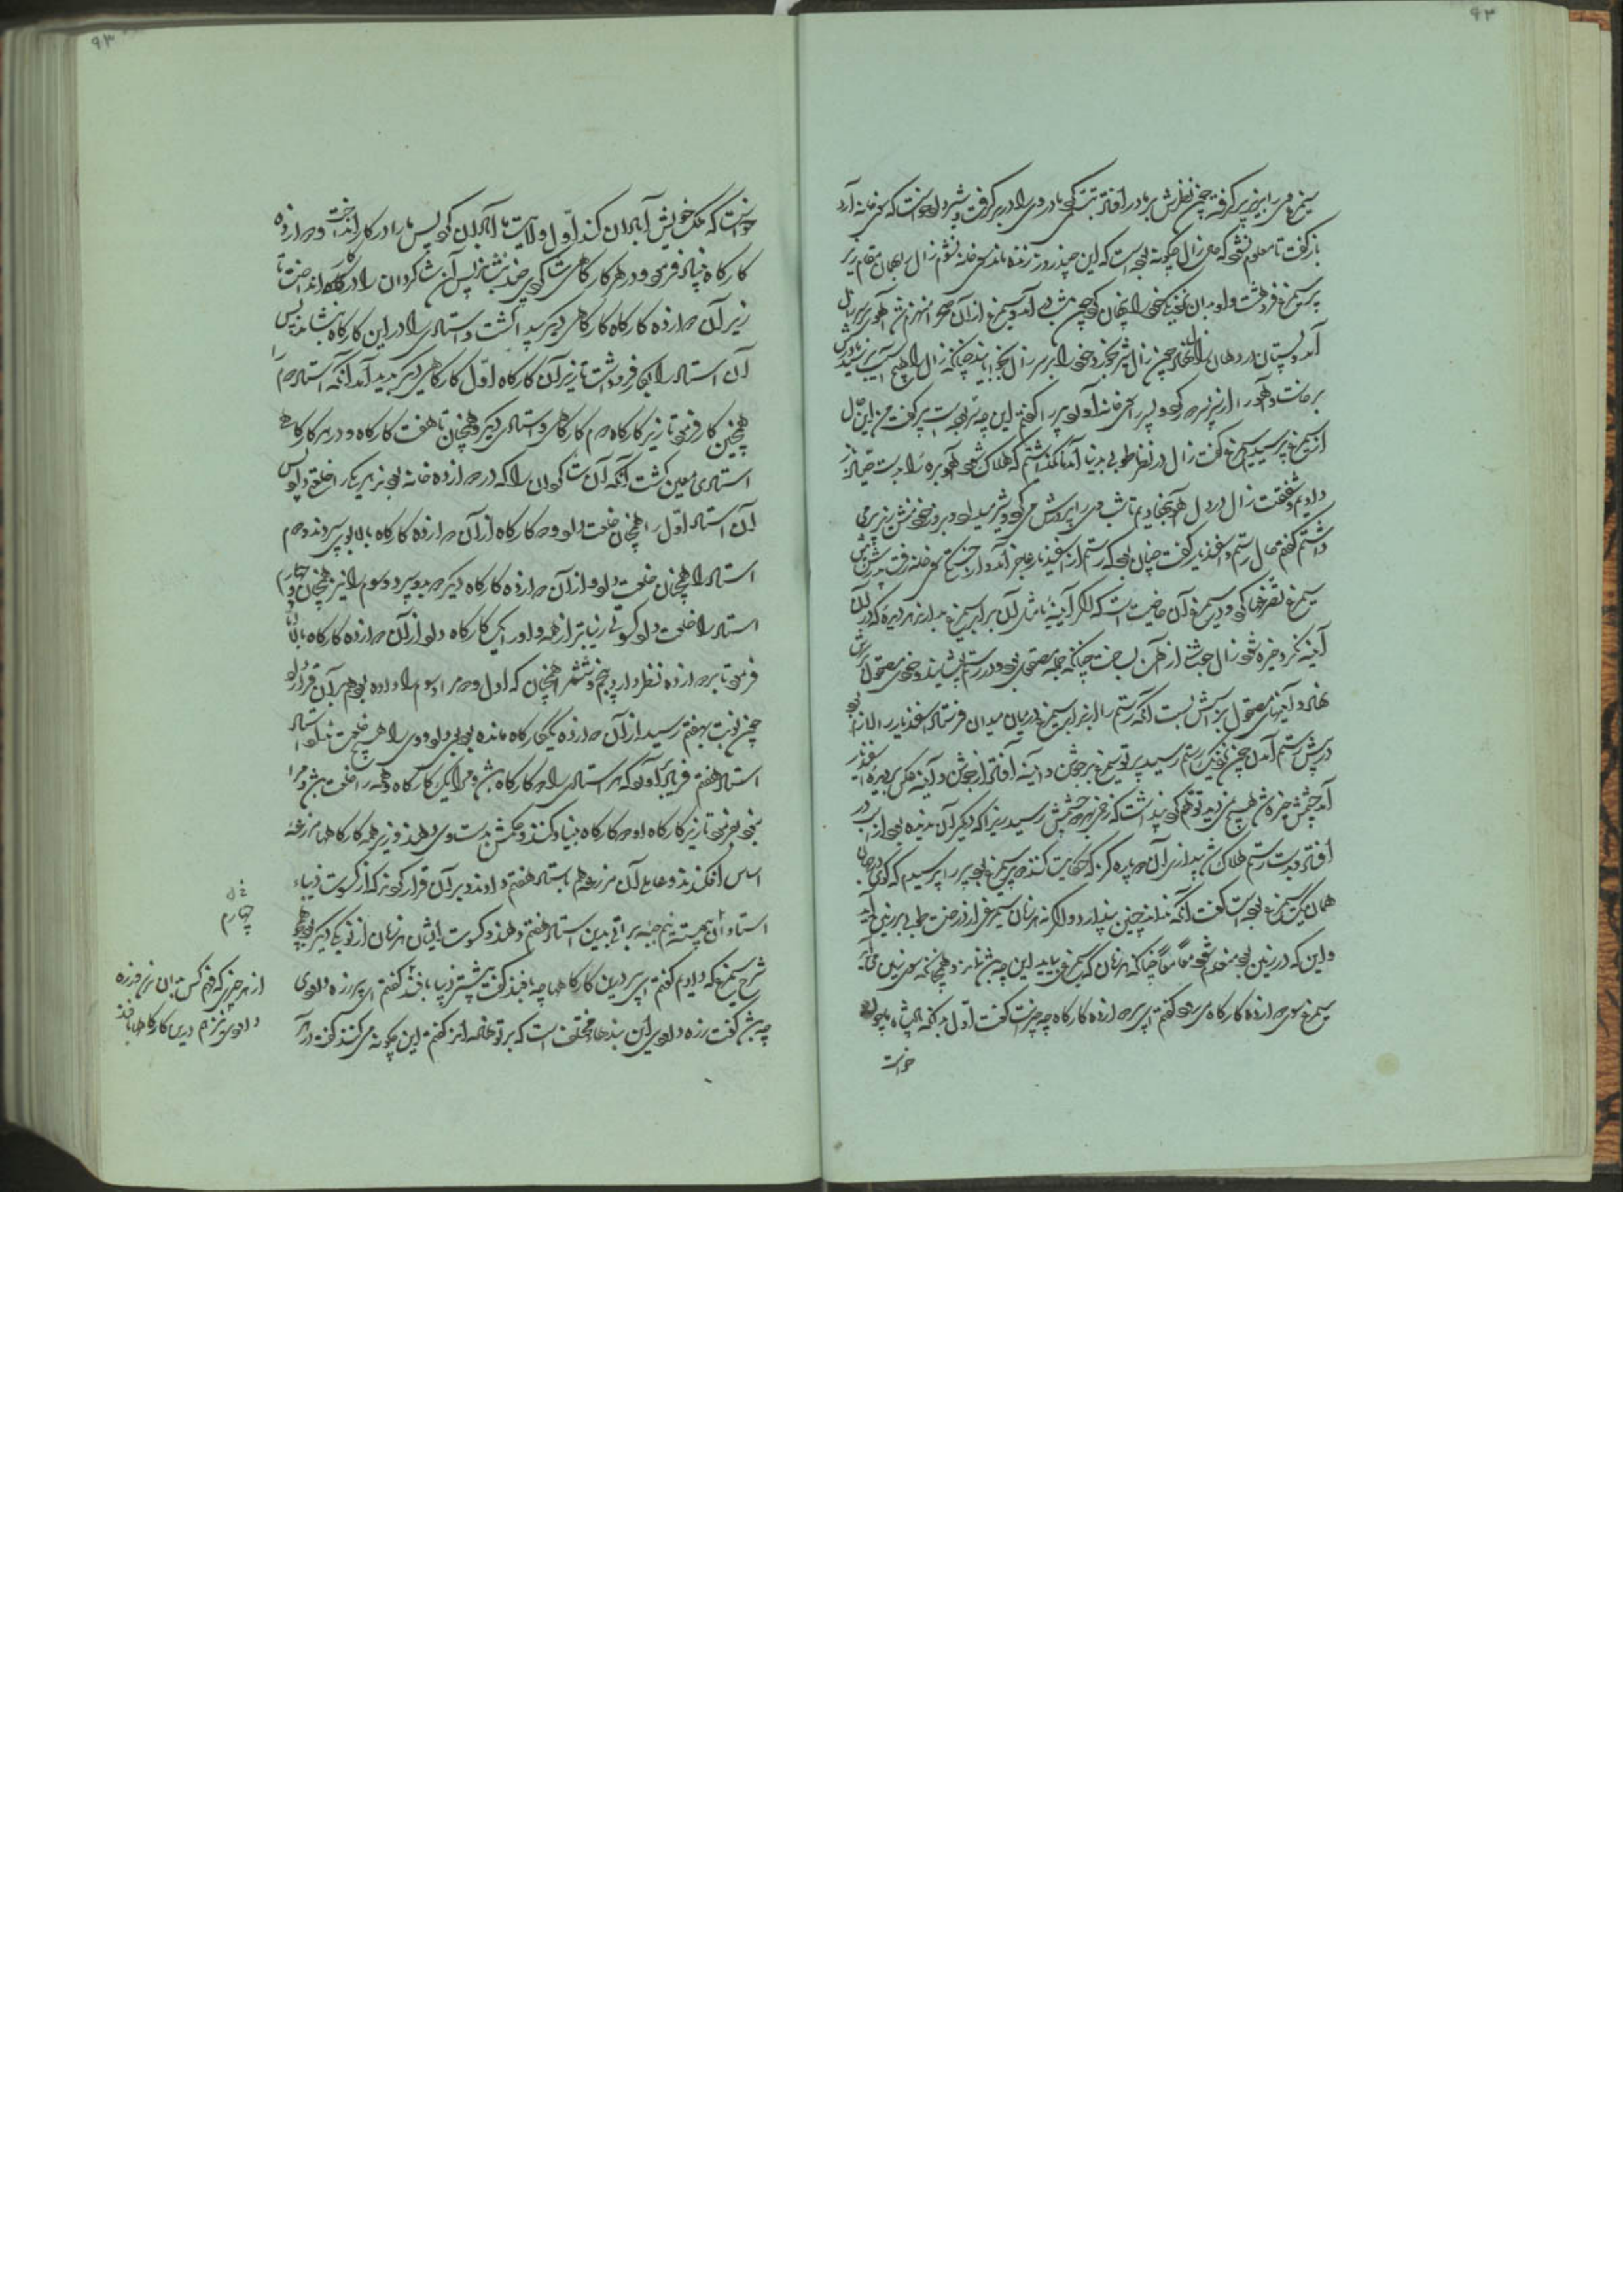 سیمرغ وی را بزیر پر گرفته چون نظرش بر مادر افتاد تبسّمی بکرد مادر وی را در بر گرفت و شیر داد خواست که سوی خانه آرد
باز گفت تا معلوم نشود که حال زال چگونه بوده است که این چند روز زنده ماند سوی خانه نشوم زال را بهمان مقام زیر
پر سیمرغ فروهشت و او بدان نزدیکی خود را پنهان کرد چون شب درآمد و سیمرغ از آن صحرا منهزم شد آهوئی بر سر زال
آمد و پستان در دهان زال نهاد چون زال شیر بخورد خود را بر سر زال بخوابانید چنانکه زال را هیچ آسیب نرسید مادرش
برخاست و آهو را از سر پسر دور کرد و پسر را سوی خانه آورد پیر را گفتم این چه سرّ بوده است پیر گفت من این حال
از سیمرغ پرسیدم سیمرغ گفت زال در نظر طوبی بدنیا آمد ما نگذاشتیم که هلاک شود آهو بره را بدست صیاد باز
دادیم و شفقت زال در دل آهو نهادیم تا شب وی را پرورش می‌کرد و شیر میداد و بروز خود منش زیر پر می
داشتم گفتم حال رستم و اسفندیار گفت چنان بود که رستم از اسفندیار عاجز آمد و از خستگی سوی خانه رفت پدرش زال پیش
سیمرغ تضرّعها کرد و در سیمرغ آن خاصیت است که اگر آینه‌ای یا مثل آن برابر سیمرغ بدارند هر دیده که در آن
آینه نگرد خیره شود زال جوشنی از آهن بساخت چنانکه جمله مصقول بود و در رستم پوشانید و خودی مصقول بر سرش
نهاد و آینهای مصقول بر اسبش بست آنگه رستم را از برابر سیمرغ در میدان فرستاد اسفندیار را لازم بود
در پیش رستم آمدن چون نزدیک رستم رسید پرتو سیمرغ بر جوشن و آینه افتاد از جوشن و آینه عکس بر دیده اسفندیار
آمد چشمش خیره شد هیچ نمی‌دید توهم کرد و پنداشت که زخمی بهر دو چشمش رسید زیرا که دیگر آن ندیده بود از اسب در
افتاد و بدست رستم هلاک شد پنداری آن دو پاره گز که حکایت کنند دو پر سیمرغ بود پیر را پرسیدم که گوئی در جهان
همان یک سیمرغ بوده است گفت آنکه نداند چنین پندارد و اگر نه هر زمان سیمرغی از درخت طوبی بر زمین آید
و این که در زمین بود منعدم شود معاً معاً چنانکه هر زمان که سیمرغی بیاید این چه باشد نماند و همچنانکه سوی زمین می‌آید
سیمرغ سوی دوازده کارگاه می‌رود گفتم ای پیر دوازده کارگاه چه چیز است گفت اوّل بدانکه پادشاه ما چون
خواست
خواست که ملک خویش آبادان کند اوّل ولایت ما آبادان کرد پس ما را در کار انداخت و دوازده
کارگاه بنیاد فرمود و در هر کارگاهی شاگردی چند بنشاند پس آن شاگردان را در کار انداخت تا
زیر آن دوازده کارگاه کارگاهی دیگر پیدا گشت و استادی را درین کارگاه بنشاند پس
آن استاد را بکار فرو داشت تا زیر آن کارگاه اوّل کارگاهی دیگر پدید آمد آنگه استاد دوم را
همچنین کار فرمود تا زیر کارگاه دوم کارگاهی و استادی دیگر و همچنان تا هفت کارگاه و در هر کارگاهی
استادی معین گشت آنگه آن شاگردان را که در دوازده خانه بودند هر یکی را خلعتی داد پس
آن استاد اوّل را همچنان خلعت داد و دو کارگاه از آن دوازده کارگاه بالا بوی سپرد و دوم
استاد را همچنان خلعت داد و از آن دوازده کارگاه دیگر دو بدو سپرد و سوم را نیز همچنان و چهارم
استاد را خلعت داد کسوتی زیباتر از همه و او را یک کارگاه داد از آن دوازده کارگاه بالا اما
فرمود تا بر دوازده نظر دارد پنجم و ششم را همچنان که اول و دوم و سوم را داده بود هم بر آن قرار داد
چون نوبت بهفتم رسید از آن دوازده یک کارگاه مانده بود بوی داد و وی را هیچ خلعت نداد استاد
استاد هفتم فریاد برآورد که هر استادی را دو کارگاه باشد و مرا یک کارگاه و همه را خلعت باشد و مرا
نبود بفرمود تا زیر کارگاه او دو کارگاه بنیاد کنند و حکمش بدست وی دهند و زیر همه کارگاهها مزرعه
اساس افکندند و عاملی آن مزرعه هم باستاد هفتم دادند و بر آن قرار کردند که از کسوت زیبای
استاد آن پیوسته نیم جبه براتی بدین استاد هفتم دهند و کسوت ایشان هر زمان از نو یکی دیگر بود همچو
شرح سیمرغ که دادیم گفتم ای پیر درین کارگاهها چه بافند گفت بیشتر دیبا بافند گفتم ای پیر زره داودی
چه باشد گفت زره داودی این بندهاء مختلف است که بر تو نهاده‌اند گفتم این چگونه می‌کنند گفت در هر
چهارم
از هر چیزی که فهم کس بدان نرسد و زره
داودی نیز هم درین کارگاهها بافند